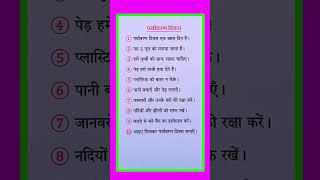 पर्यावरण दिवस
① पर्यावरण दिवस एक खास दिन है।
② यह 5 जून को मनाया जाता है।
③ हमें पृथ्वी को साफ रखना चाहिए।
④ पेड़ हमें ताजी हवा देते हैं।
⑤ प्लास्टिक को बाहर न फेंकें।
⑥ पानी बचाएँ और पेड़ लगाएँ।
⑦ जानवरों और उनके घरों की रक्षा करें।
⑧ नदियों और झीलों को साफ रखें।
⑨ कपड़े से बने बैग का इस्तेमाल करें।
⑩ आइए मिलकर पर्यावरण दिवस मनाएँ।
④ पेड़ ह
⑤ प्लास्टि
⑥ पानी ब
⑦ जानवरों
⑧ नदियों
रक्षा करें।
रखें।